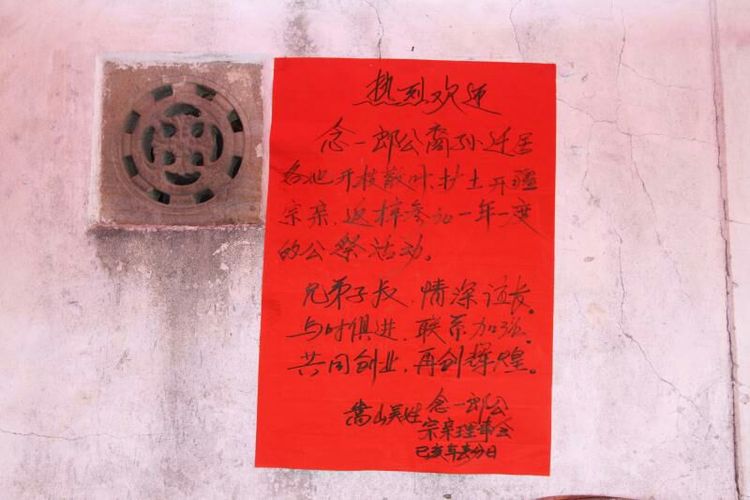 热烈欢迎
念一郎公裔孙迁居
各地开枝散叶、扩土开疆
宗亲、返梓参加一年一度
的公祭活动。
兄弟子叔、情深谊长。
与时俱进、联系加强、
共同创业、再创辉煌。
嵩山吴姓 念一郎公
宗亲理事会
己亥年春分日